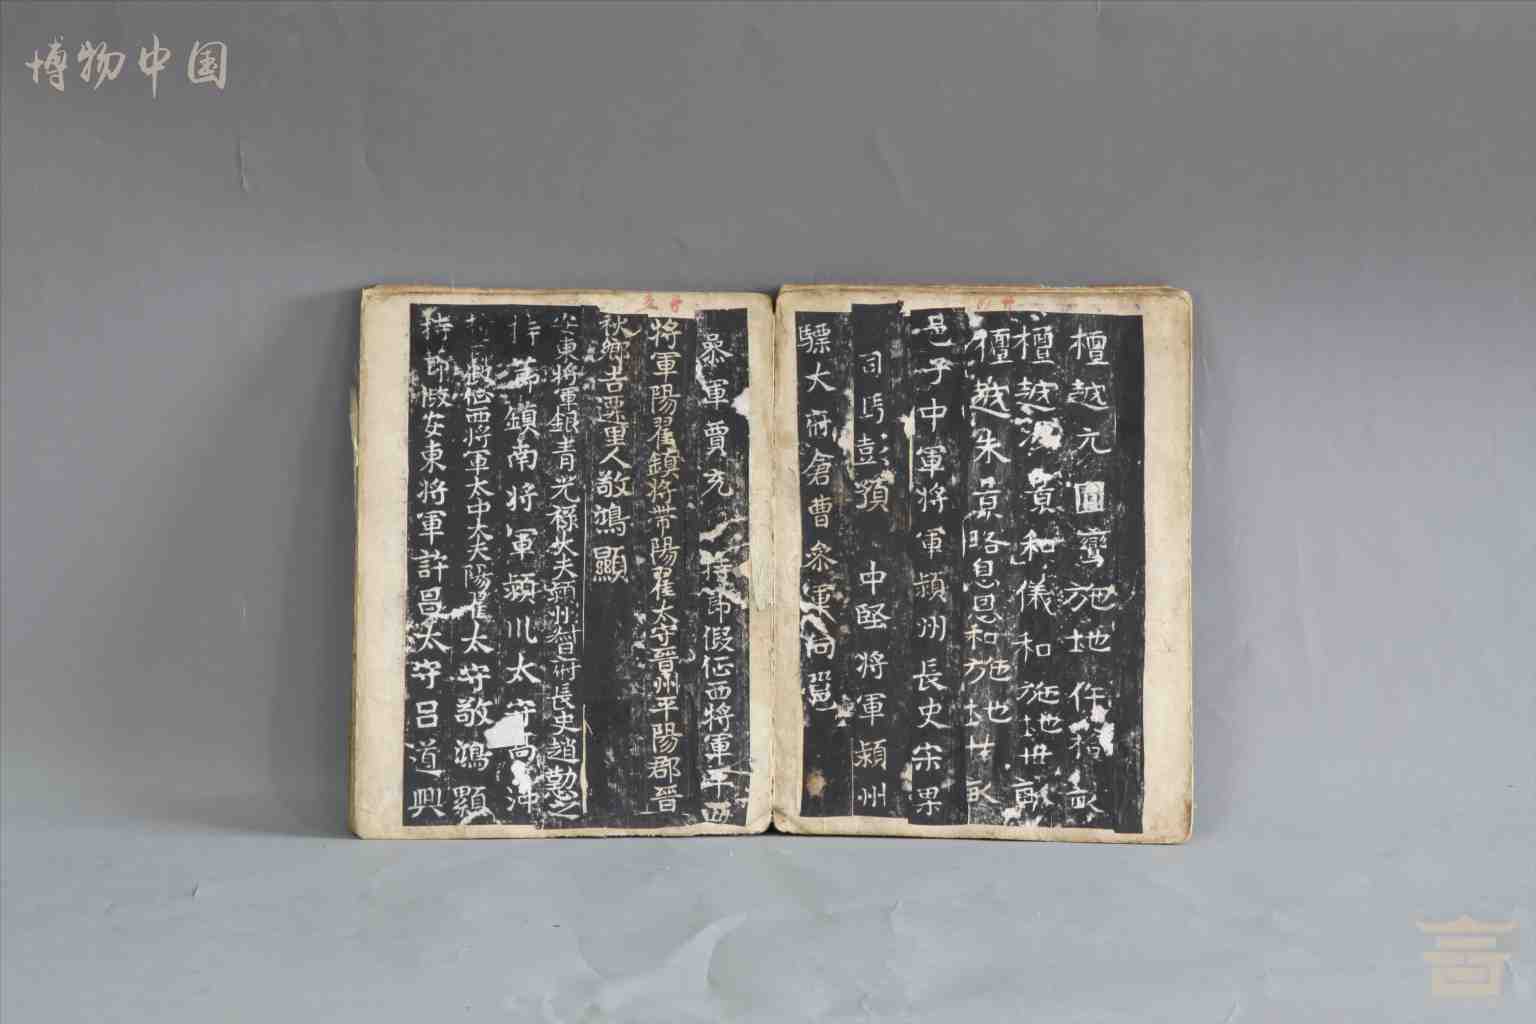 博物中国
檀越元圖鸞施地
檀越 貳和儀和施地卌畝
檀越朱貳略息思和施地廿畝
邑子中軍將軍潁州長史宋果
司馬彭預 中堅將軍潁州
驃大府倉曹參軍向
參軍賈充 持節假征西將軍平西
將軍陽翟鎮將帶陽翟太守晉州平陽郡晉
秋鄉吉遷里人敬鴻顯
安東將軍銀青光祿大夫潁州 府長史趙懃之
持節鎮南將軍潁川太守高沖
假征西將軍太中大夫陽翟太守敬鴻顯
持節假安東將軍許昌太守呂道興